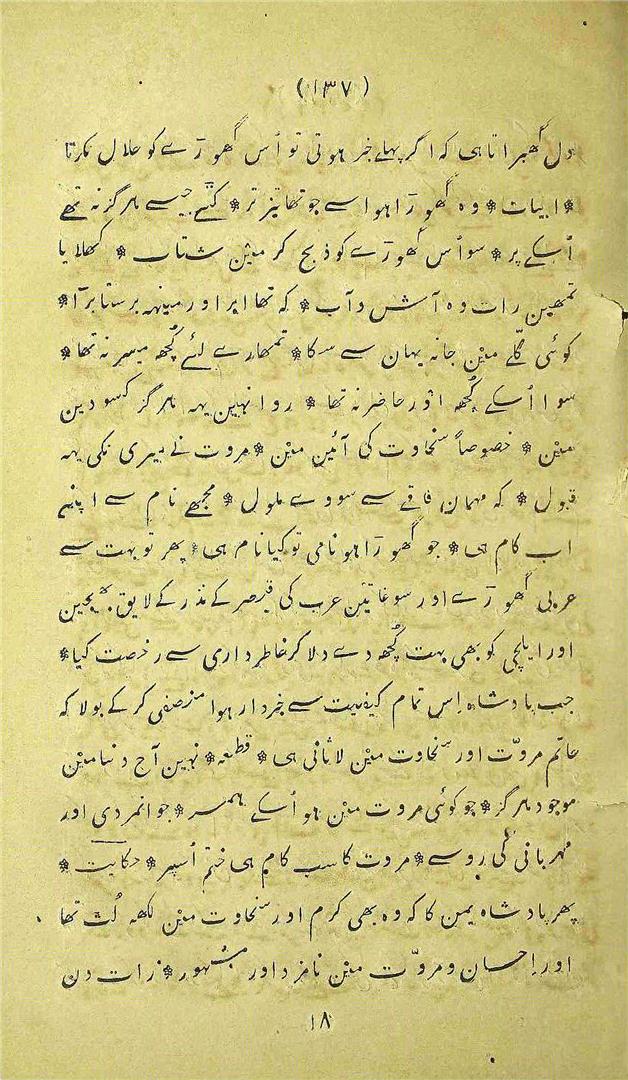 (۱۳۷)
دل گھبراتا ہی کہ اگر پہلے خبر ہوتی تو اُس گھوڑے کو حلال نکرتا
* ابیات * وہ گھوڑا ہوا سے جو تھا تیز تر * کٹّے جیسے ہرگز نہ تھے
اُسکے پر * سو اُس گھوڑے کو ذبح کر میں شتاب * کھلایا
تمھین رات وہ آش و آب * کہ تھا ابر اور مینھہ برستا بڑا *
کوئی گلّے میں جا نہ یہان سے سکا * تمھارے لئے کُچھ میسر نہ تھا *
سوا اُسکے کُچھ اور حاضر نہ تھا * روا نہین یہہ ہرگز کسو دین
میں * خصوصاً سخاوت کی آئین میں * مروت نے میری نکی یہہ
قبول * کہ مہمان فاقے سے سووے ملول * مجھے نام سے اپنے
اب کام ہی * جو گھوڑا ہو نامی تو کیا نام ہی * پھر تو بہت سے
عربی گھوڑے اور سوغاتین عرب کی قیصر کے نذر کے لایق بھیجین
اور ایلچی کو بھی بہت کُچھ دے دلا کر خاطرداری سے رخصت کیا *
جب پادشاہ اِس تمام کیفیت سے خبردار ہوا منصفی کر کے بولا کہ
حاتم مروّت اور سخاوت میں لاثانی ہی * قطعہ * نہین آج دنیا میں
موجود ہرگز * جو کوئی مروت میں ہو اُسکے ہمسر * جوانمردی اور
مہربانی کی رو سے * مروت کا سب کام ہی ختم اُسپر * حکایت *
پھر پادشاہ یمن کا کہ وہ بھی کرم اور سخاوت میں لکھہ لُٹ تھا
اور اِحسان و مروّت میں نامزد اور مشہور * رات دن
۱۸